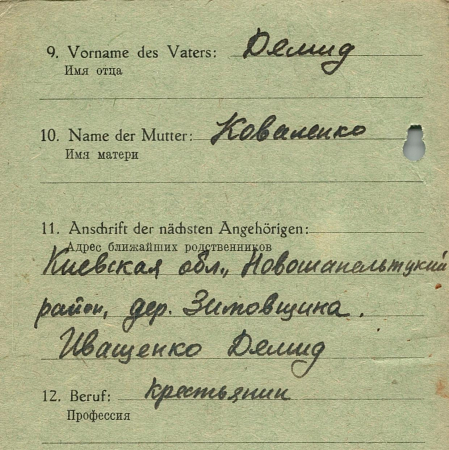 9. Vorname des Vaters: Демид
Имя отца
10. Name der Mutter: Коваленко
Имя матери
11. Anschrift der nächsten Angehörigen:
Адрес ближайших родственников
Киевская обл.,
район, дер. Зимовщина.
Иващенко Демид
12. Beruf: крестьянин
Профессия